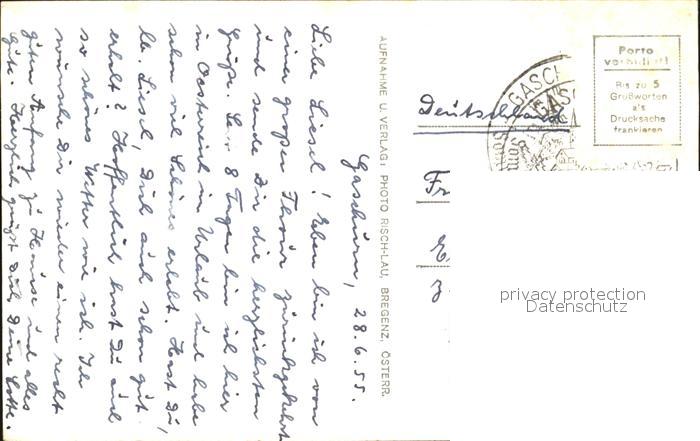 Gaschurn, 28.6.55.
Liebe Liesel! Eben bin ich von
einer großen Tour zurückgekehrt
und sende Dir die herzlichsten
Grüße. Seit 8 Tagen bin ich hier
in Österreich in Urlaub und habe
schon viel Schönes erlebt. Hast Du,
lb. Liesel, Dich auch schon gut
erholt? Hoffentlich hast Du auch
so schönes Wetter wie ich. Ich
wünsche Dir wieder einen recht
guten Anfang zu Hause und alles
Gute. Herzlich grüßt Dich, Deine Lotte.
AUFNAHME U. VERLAG: PHOTO RISCH-LAU, BREGENZ, ÖSTERR.
Porto
verbilligt!
Bis zu 5
Grußworten
als
Drucksache
frankieren
GASCH
GASCH
Deutschland
Fr
privacy protection
Datenschutz